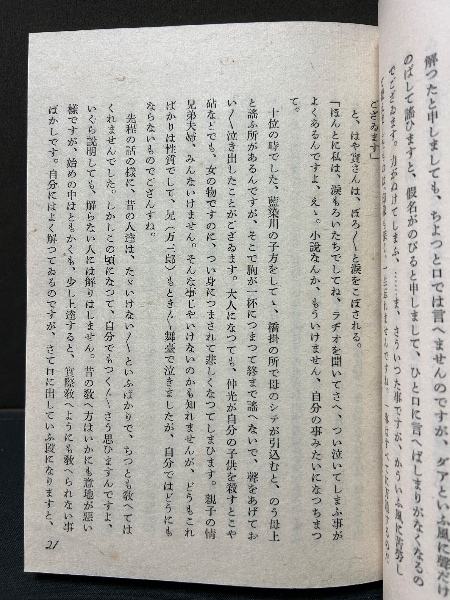 解つたと申しましても、ちよつと口では言へませんのですが、ダアといふ風に聲だけ
のばして謠ひますと、假名がのびると申しまして、ひと口に言へばしまりがなくなるの
でございます。力がぬけてしまふ、……ま、さういつた事ですが、かういふ風に苦勞し
ございます」
と、はや實さんは、ぽろ〱と淚をこぼされる。
「ほんとに私は、淚もろいたちでしてね、ラヂオを聞いてさへ、つい泣いてしまふ事が
よくあるんですよ、えゝ。小說なんか、もういけません、自分の事みたいになつちまつ
て。
十位の時でした、藍染川の子方をしてゐて、橋掛の所で母のシテが引込むと、のう母上
と謠ふ所があるんですが、そこで胸が一杯につまつて終まで謠へないで、聲をあげてお
い〱泣き出したことがございます。大人になつても、仲光が自分の子供を殺すとこや
砧などでも、女の物ですのに、つい身につまされて悲しくなつてしまひます。親子の情
兄弟夫婦、みんないけません。そんな事じやいけないのかも知れませんが、どうもこれ
ばかりは性質でして、兄(万三郎)もときん〲舞臺で泣きましたが、自分ではどうにも
ならないものでござんすね。
先程の話の樣に、昔の人達は、たゞいけない〱といふばかりで、ちつとも敎へては
くれませんでした。しかしこの頃になつて、自分でもつくん〲さう思ひますんですよ、
いくら說明しても、解らない人には解りはしません。昔の敎へ方はいかにも意地が惡い
樣ですが、始めの中はともかくも、少し上達すると、實際敎へようにも敎へられない事
ばかしです。自分にはよく解つてゐるのですが、さて口に出していふ段になりますと、
21